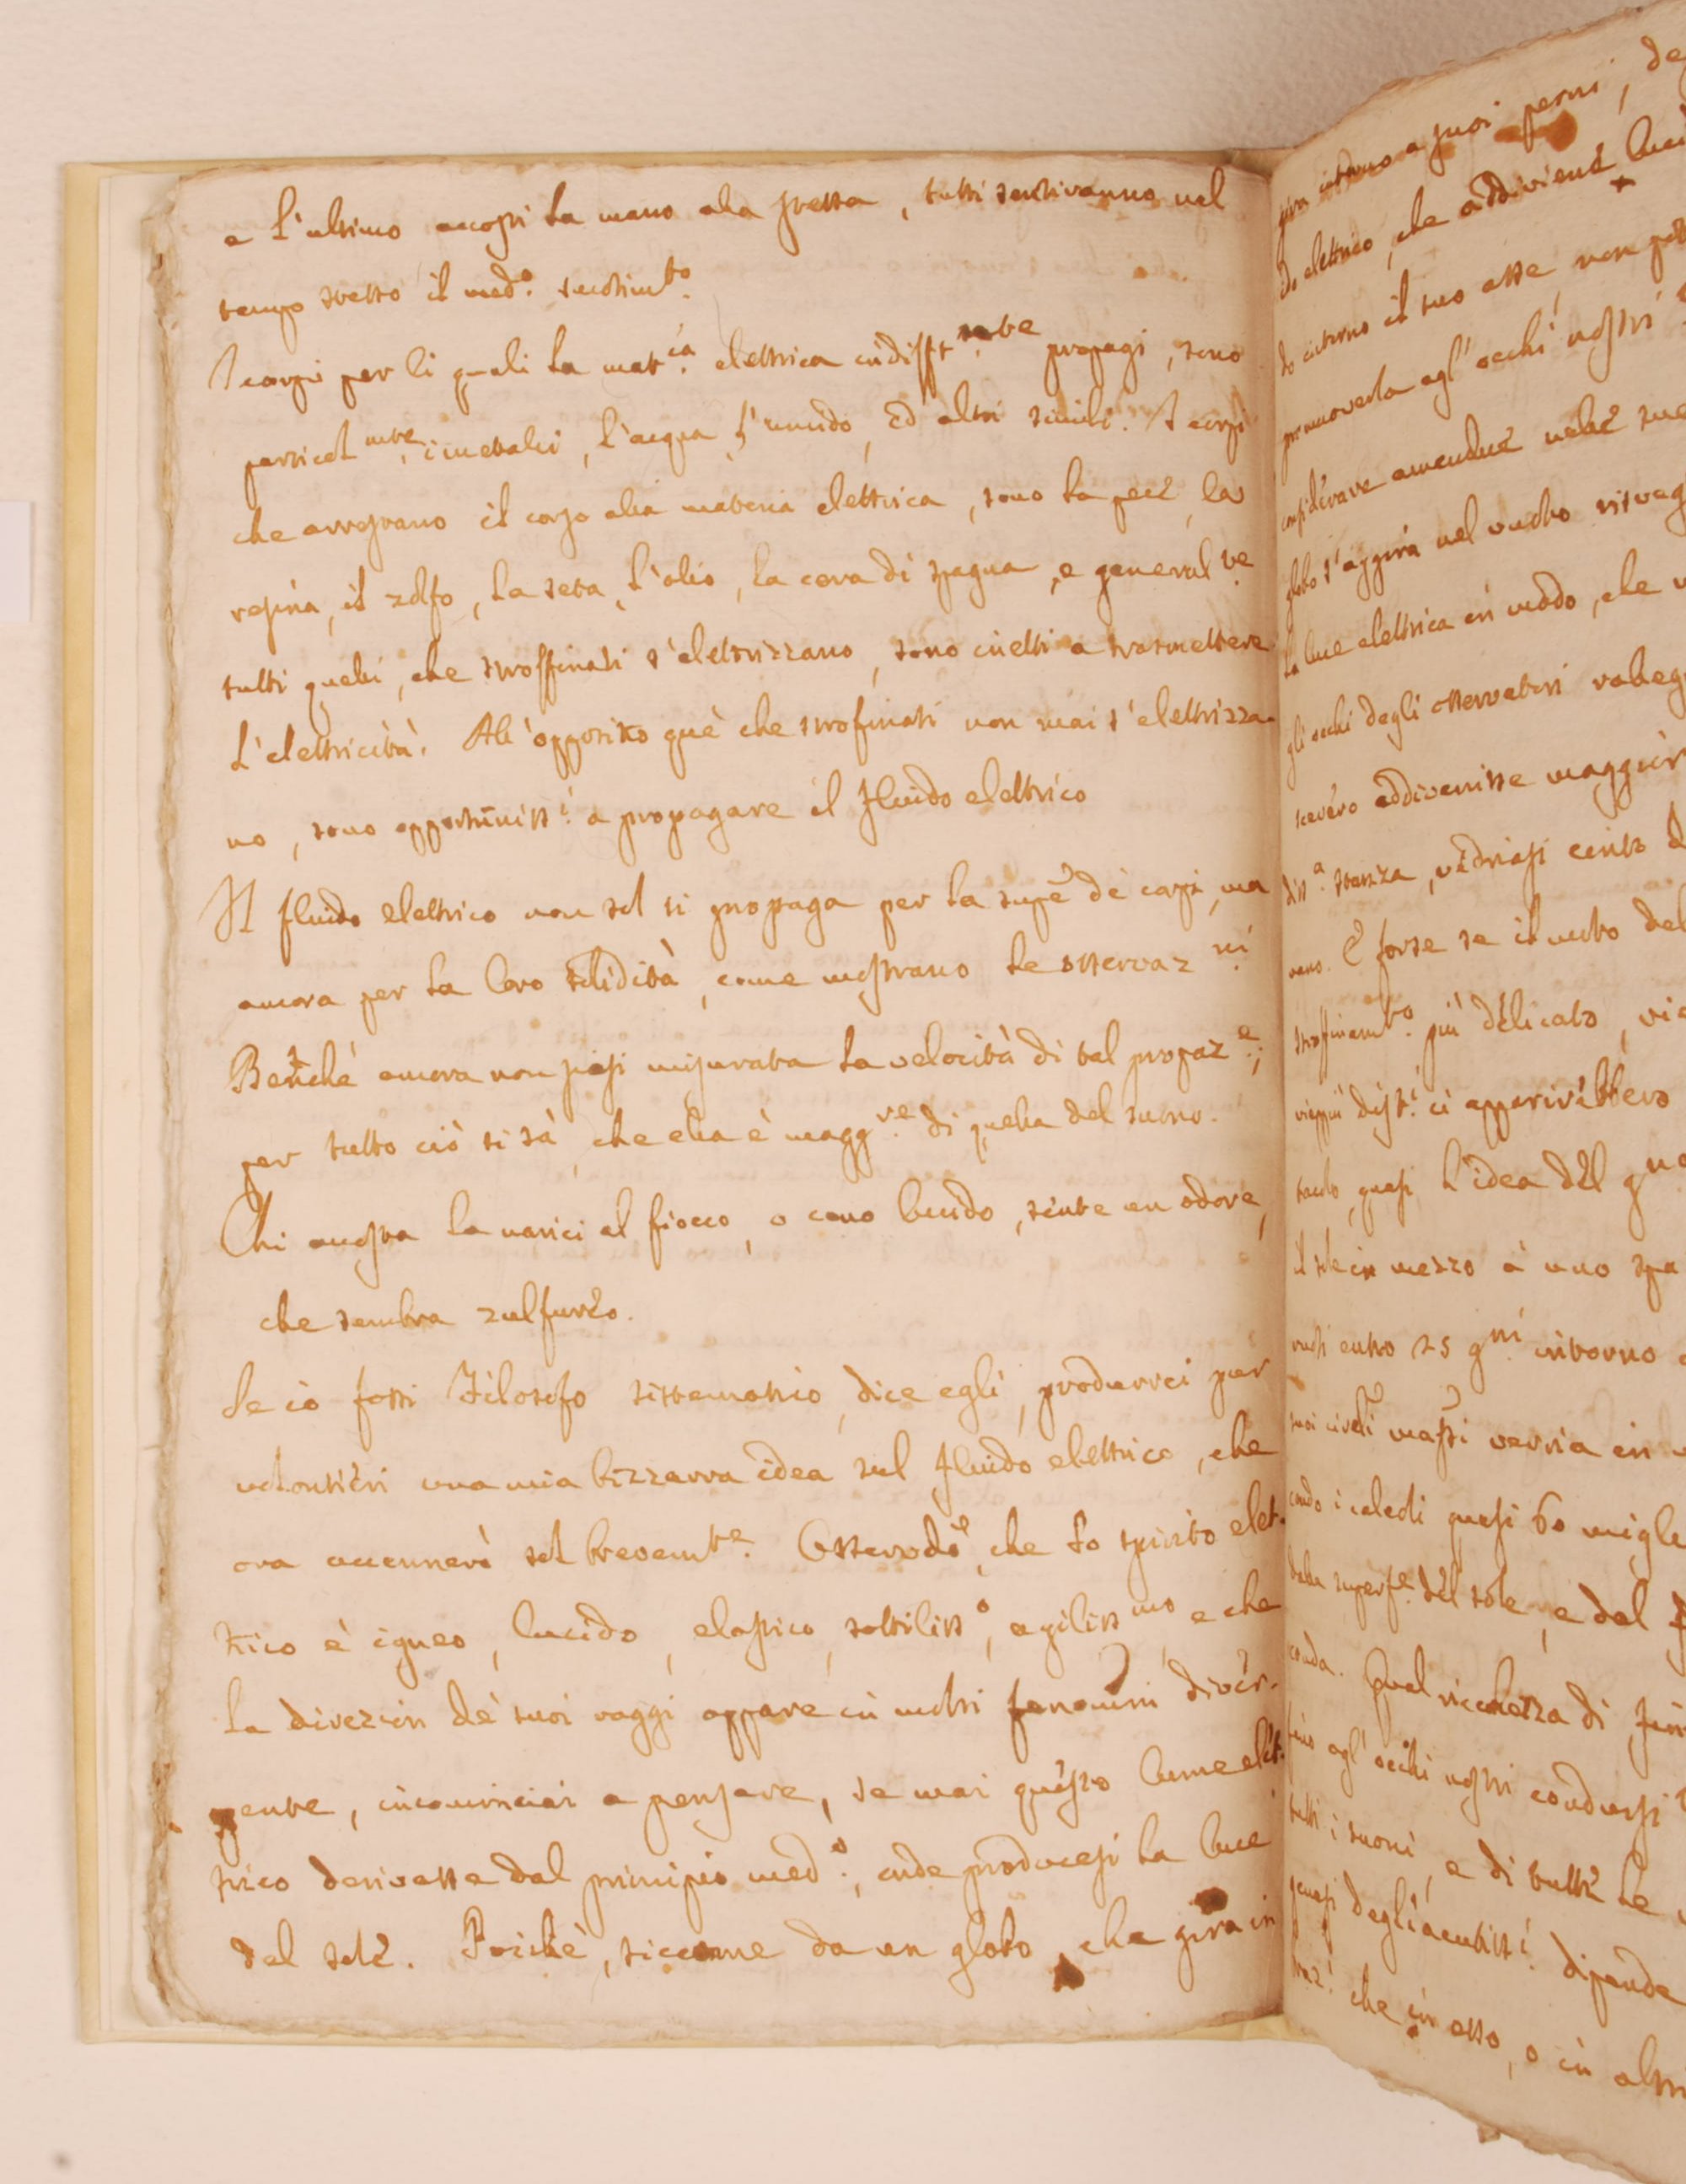 e l'ultimo accosti la mano ala stessa, tutti sentiranno nel
tempo stesso il med.o sentim.to
I corpi per li quali la mat.ia elettrica indifft.te propagi, sono
particol.mte i metalli, l'acqua, l'umido, ed altri simili. I corpi
che arrestano il corso alla materia elettrica, sono la pece, la
resina, il zolfo, la seta, l'olio, la cera di spagna, e general.te
tutti quelli, che stroffinati s'elettrizzano, sono inetti a trasmettere
l'elettricità. All'opposito què che strofinati non mai s'elettrizza-
no, sono opportuniss.i a propagare il fluido elettrico
Il fluido elettrico non sol si propaga per la supe de corpi, ma
ancora per la loro solidità, come mostrano le osservaz.ni
Benchè ancora non siasi misurata la velocità di tal propaz.e;
per tutto ciò si sà, che ella è magg.re di quella del suono.
Chi accosta la narici al fiocco, o cono lucido, sente un odore,
che sembra zulfureo.
Se io fossi Filosofo sistematico, dice egli, produrrei pur
volontieri una mia bizzarra idea sul fluido elettrico, che
ora accennerò sol brevem.te. Osservado, che lo spirito elet-
trico è igneo, lucido, elastico, sottiliss.o, agiliss.mo e che
la direzion de' suoi raggi appare in molti fenomeni diver-
gente, incominciai a pensare, se mai questo lume elet-
trico derivasse dal principio med.o, onde producesi la luce
del sole. Poichè, siccome da un globo, che gira in
gira intorno a suoi perni, de
do elettrico, che addiviene luci
do intorno il suo asse, non po
promoverla agl'occhi nostri
considerare amendue nelle sue
globo s'aggira nel vuoto
la luce elettrica in modo, che
gli occhi degli osservatori
addivenisse maggior
stanza, vedriasi cinto d
E forse se il moto del
stroffinam.to più delicato, vie
vieppiù dist.i ci apparirebbero
quasi l'idea del
il sole in mezzo à uno spa
entro 25 g.ni intorno
verria in
i calcoli quasi 60 migl
dalla superf.e del sole, e del
Qual ricchezza di
fino agl'occhi nostri condursi
tutti i suoni, e di tutte le
quasi degli acutiss.i dipende
che in esso, o in altr